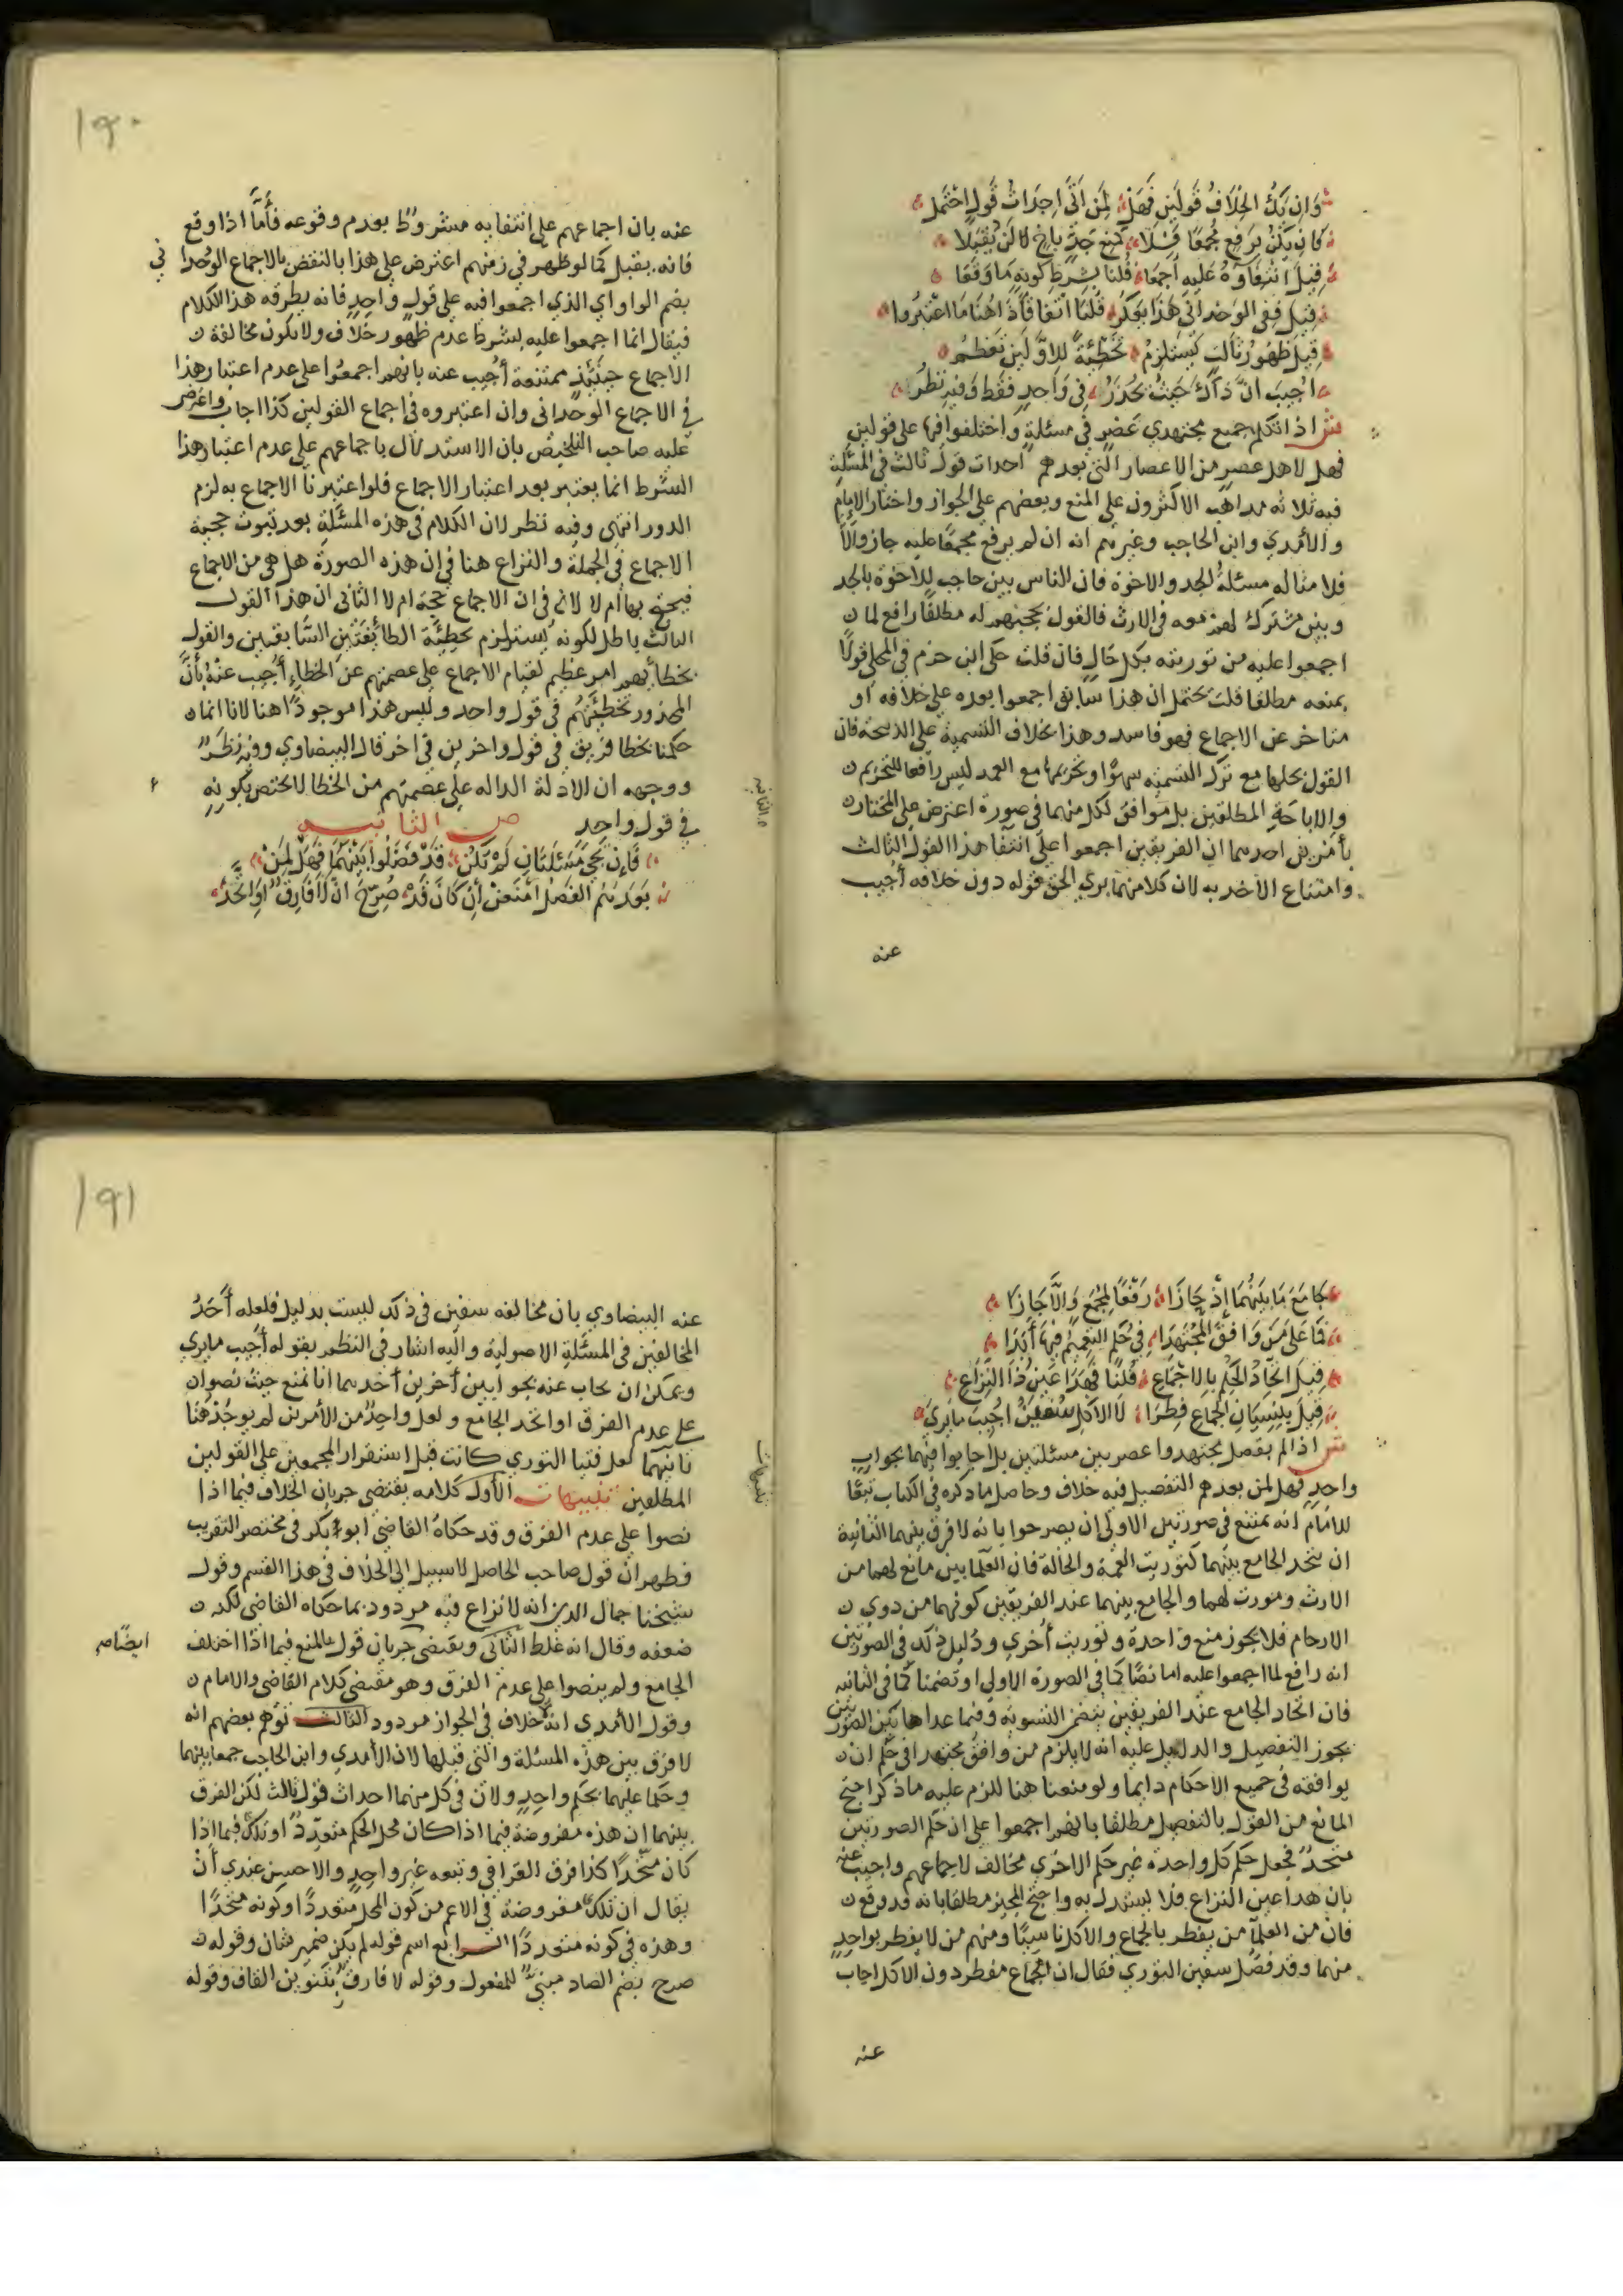 وَاِن يَكُ الخِلَافُ قَولَينِ فَهَل لِمَن اَتَى اِحدَاثُ قَولٍ احتُمِل
فَاِن يَكُن يَرفَعُ مُجمَعًا فَلَا كَمَنعِ جَدٍّ بِاَخٍ لَن يُقبَلَا
قِيلَ انتِفَاوُهُ عَلَيهِ اَجمَعَا قُلنَا بِشَرطِ كَونِهِ مَا وَقَعَا
قِيلَ فَفِي الوُحدَانِي هَذَا يُذكَرُ قُلنَا اتِّفَاقًا ذَا هُنَا مَا اعتَبَرُوا
قِيلَ ظُهُورُ ثَالِثٍ يَستَلزِمُ تَخطِئَةً لِلاَوَّلَينِ تَعظُمُ
اُجِيبَ اَنَّ ذَاكَ حَيثُ يُحذَرُ فِي وَاحِدٍ فَقَط وَفِيهِ نَظَرُ
ش اذا تكلم جميع مجتهدي عصر في مسئلة واختلفوا فيها على قولين
فهل لاهل عصر من الاعصار التي بعدهم احداث قول ثالث في المسئلة
فيه ثلاثه مذاهب الاكثرون على المنع وبعضهم على الجواز واختار الامام
والآمدي وابن الحاجب وغيرهم انه ان لم يرفع مجمعا عليه جاز والا
فلا مثاله مسئلة الجد والاخوة فان الناس بين حاجب للاخوة بالجد
وبين مشترك لهم معه في الارث فالقول بحجبهم له مطلقا رافع لما
اجمعوا عليه من توريثه بكل حال فان قلت حكى ابن حزم في المحلى قولا
بمنعه مطلقا قلت يحتمل ان هذا سابق اجمعوا بعده على خلافه او
متاخر عن الاجماع فهو فاسد وهذا بخلاف التسمية على الذبيحة فان
القول بحلها مع ترك التسميه سهوا وتحريمها مع العمد ليس رافعا للتحريم
والاباحة المطلقين بل موافق لكل منهما في صورة اعترض على المختار
بأمرين احدهما ان الفريقين اجمعوا على انتفا هذا القول الثالث
وامتناع الاخذ به لان كلا منهما يرى الحق قوله دون خلافه اجيب
عنه
١٩٠
عنه بان اجماعهم على انتفايه مشروط بعدم وقوعه فأما اذا وقع
فانه يقبل كما لو ظهر في زمنهم اعترض على هذا بالنقض بالاجماع الوُحداني
بضم الواو اي الذي اجمعوا فيه على قول واحد فانه يطرقه هذا الكلام
فيقال انما اجمعوا عليه بشرط عدم ظهور خلاف ولا يكون مخالفة
الاجماع حينئذ ممتنعة أجيب عنه بانهم اجمعوا على عدم اعتبار هذا
في الاجماع الوحداني وان اعتبروه في اجماع القولين كذا اجاب واعترض
عليه صاحب التلخيص بان الاستدلال باجماعهم على عدم اعتبار هذا
الشرط انما يعتبر بعد اعتبار الاجماع فلو اعتبرنا الاجماع به لزم
الدور انتهى وفيه نظر لان الكلام في هذه المسئلة بعد ثبوت حجية
الاجماع في الجملة والنزاع هنا في ان هذه الصورة هل هي من الاجماع
فيحتج بها ام لا لا في ان الاجماع حجة ام لا الثاني ان هذا القول
الثالث باطل لكونه يستلزم تخطئة الطائفتين السابقتين والقول
بخطأيهم امر عظيم لقيام الاجماع على عصمتهم عن الخطاء أجيب عنه بأن
المحذور تخطئتهم في قول واحد وليس هذا موجودا هنا لانا انما
حكمنا بخطا فريق في قول واخرين في اخر قال البيضاوي وفيه نظر
ووجهه ان الادلة الداله على عصمتهم من الخطا لا تختص بكونه
في قول واحد ص الثانيه
فَاِن تَجِي مَسئَلَتَانِ لَم تَكُن قَد فَصَّلُوا بَينَهُمَا فَهَل لِمَن
بَعدَهُم الفَصلُ امنَعَن اِن كَانَ قَد صُرِّحَ اَن لَا فَارِقٌ اَوِ اتَّحَد
الثانيه
جَامِعُ مَا بَينَهُمَا إِذ حَازَا رَفعًا لِمُجمَعٍ وَاِلَّا جَازَا
مَا عَلَى مَن وَافَقَ المُجتَهِدَا فِي حُكمٍ التَعمِيمُ فِيهَا أَبَدَا
قِيلَ اتِّحَادُ الحُكمِ بِالاِجمَاعِ قُلنَا فَهَذَا عَينُ ذَا النِّزَاعِ
قِيلَ بِنِسيَانِ الجِمَاعِ فَطَّرَا لَا الاَكلِ سُفيَنُ اُجِيبَ مَا يَرَى
ش اذا لم يفصل مجتهدوا عصر بين مسئلتين بل اجابوا فيهما بجواب
واحد فهل لمن بعدهم التفصيل فيه خلاف وحاصل ما ذكره في الكتاب تبعا
للامام انه يمتنع في صورتين الاولى ان يصرحوا بانه لا فرق بينهما الثانية
ان يتحد الجامع بينهما كتوريث العمة والخالة فان العلما بين مانع لهما من
الارث ومورث لهما والجامع بينهما عند الفريقين كونهما من ذوي
الارحام فلا يجوز منع واحدة وتوريث أخرى ودليل ذلك في الصورتين
انه رافع لما اجمعوا عليه اما نصا كما في الصورة الاولى او تضمنا كما في الثانيه
فان اتحاد الجامع عند الفريقين يتضمن التسويه وفيما عدا هاتين الصورتين
يجوز التفصيل والدليل عليه انه لا يلزم من وافق مجتهدا في حكم ان
يوافقه في جميع الاحكام دايما ولو منعنا هنا للزم عليه ما ذكر احتج
المانع من القول بالتفصيل مطلقا بانهم اجمعوا على ان حكم الصورتين
متحد فجعل حكم كل واحدة غير حكم الاخرى مخالف لاجماعهم واجيب عنه
بان هذا عين النزاع فلا يستدل به واحتج المجيز مطلقا بانه قد وقع
فان من العلما من يفطر بالجماع والاكل ناسيا ومنهم من لا يفطر بواحد
منهما وقد فصل سفين الثوري فقال ان الجماع مفطر دون الاكل اجاب
عنه
١٩١
عنه البيضاوي بان مخالفة سفين في ذلك ليست بدليل فلعله أحد
المخالفين في المسئلة الاصولية واليه اشار في النظم بقوله أجيب ما يرى
ويمكن ان يجاب عنه بجوابين أخرين أحدهما انا نمنع حيث نصوا
على عدم الفرق او اتحد الجامع ولعل واحدا من الأمرين لم يوجد هنا
ثانيهما لعل فتيا الثوري كانت قبل استقرار المجمعين على القولين
المطلقين تنبيهات الأول كلامه يقتضي جريان الخلاف فيما اذا
نصوا على عدم الفرق وقد حكاه القاضي ابو بكر في مختصر التقريب
فظهر ان قول صاحب الحاصل لا سبيل الى الخلاف في هذا القسم وقول
شيخنا جمال الدين انه لا نزاع فيه مردود بما حكاه القاضي لكن
ضعفه وقال انه غلط الثاني ويقتضى جريان قول بالمنع فيما اذا اختلف ايضًا
الجامع ولم ينصوا على عدم الفرق وهو مقتضى كلام القاضي والامام
وقول الآمدي انه لا خلاف في الجواز مردود الثالث توهم بعضهم انه
لا فرق بين هذه المسئلة والتي قبلها لان الآمدي وابن الحاجب جمعا بينهما
وحكما عليهما بحكم واحد ولان في كل منهما احداث قول ثالث لكن الفرق
بينهما ان هذه مفروضة فيما اذا كان محل الحكم متعددا وتلك فيما اذا
كان متحدا كذا فرق القرافي وتبعه غير واحد والاحسن عندي أن
يقال ان تلك مفروضة في الاعم من كون المحل متعددا وكونه متحدا
وهذه في كونه متعددا الرابع اسم قوله لم يكن ضمير شان وقوله
صرح بضم الصاد مبني للمفعول وقوله لا فارق بتنوين القاف وقوله
تنبيهات